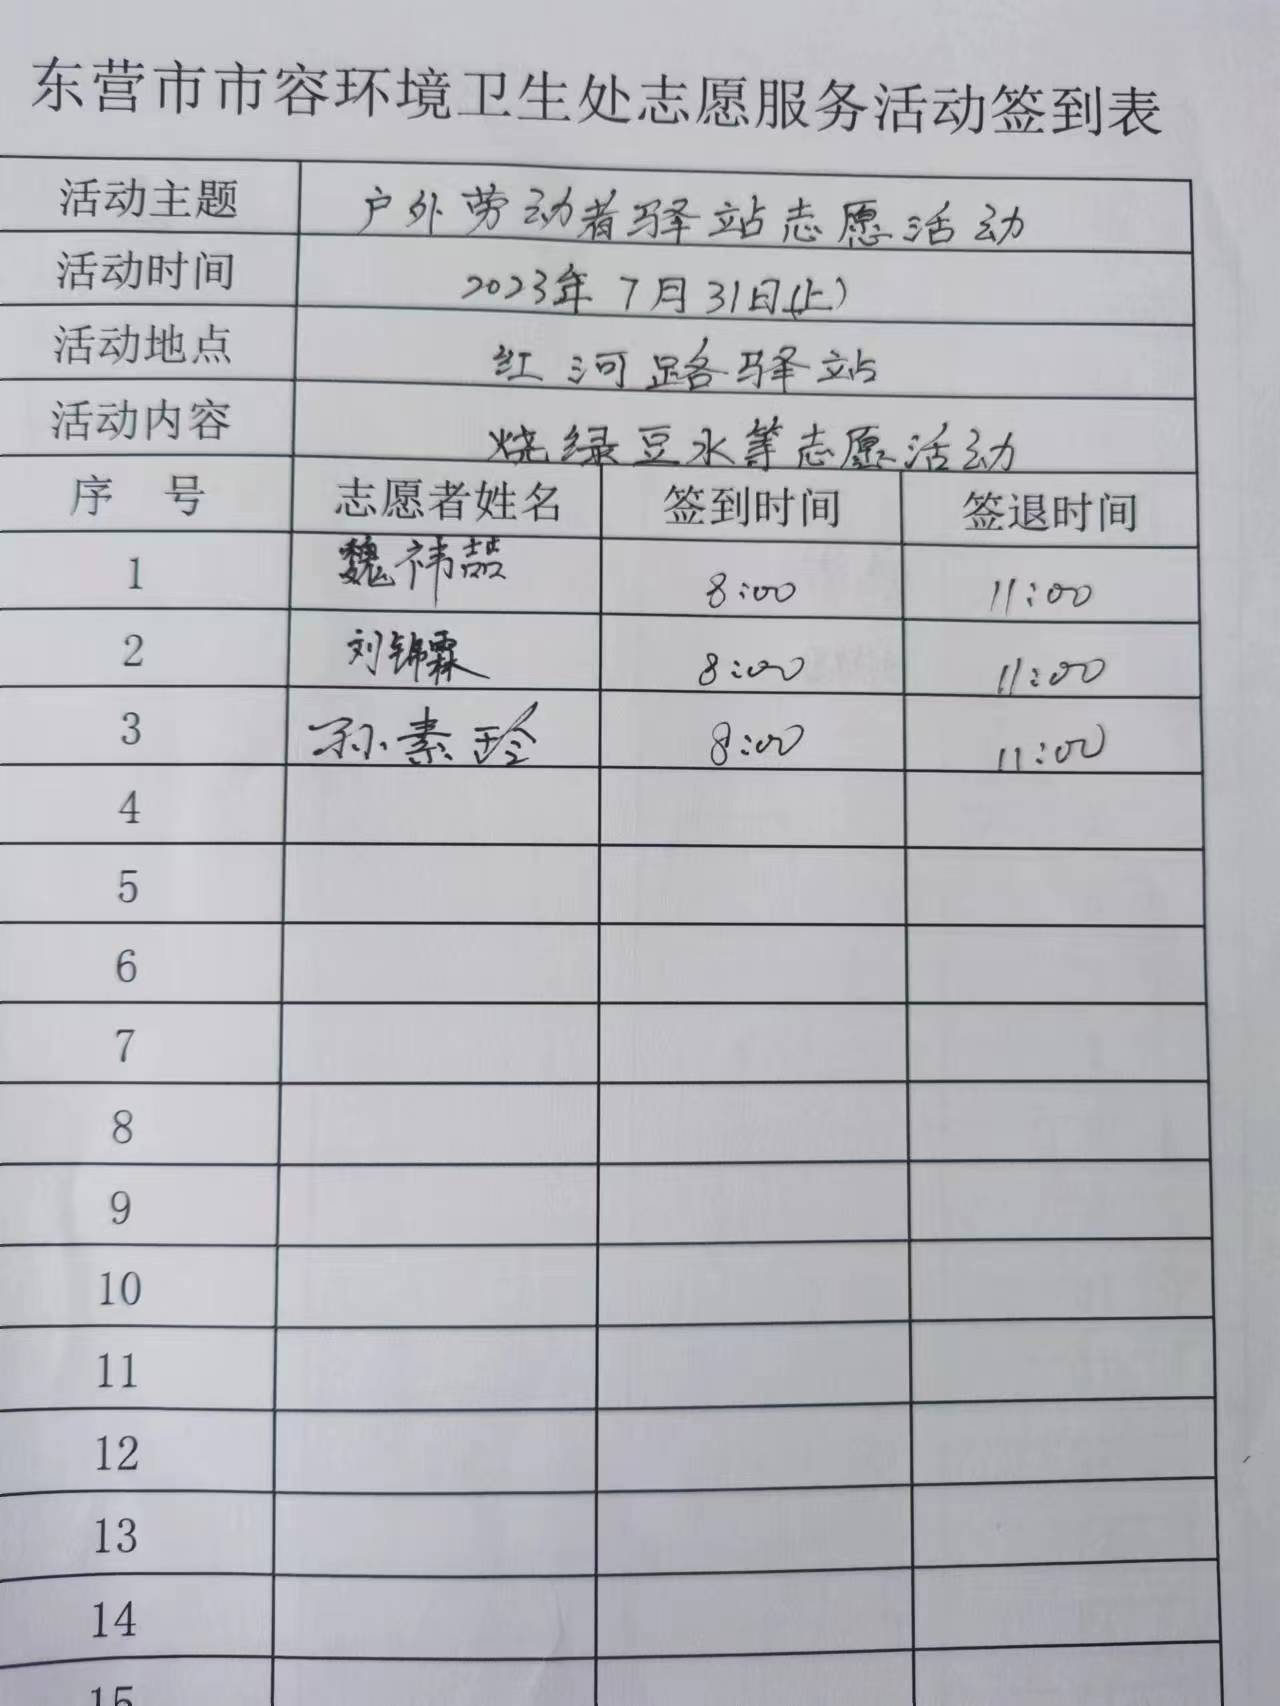 东营市市容环境卫生处志愿服务活动签到表
活动主题 户外劳动者驿站志愿活动
活动时间 2023年7月31日(上)
活动地点 红河路驿站
活动内容 烧绿豆水等志愿活动
序 号 志愿者姓名 签到时间 签退时间
1 魏祎喆 8:00 11:00
2 刘锦霖 8:00 11:00
3 孙素玲 8:00 11:00
4
5
6
7
8
9
10
11
12
13
14
15